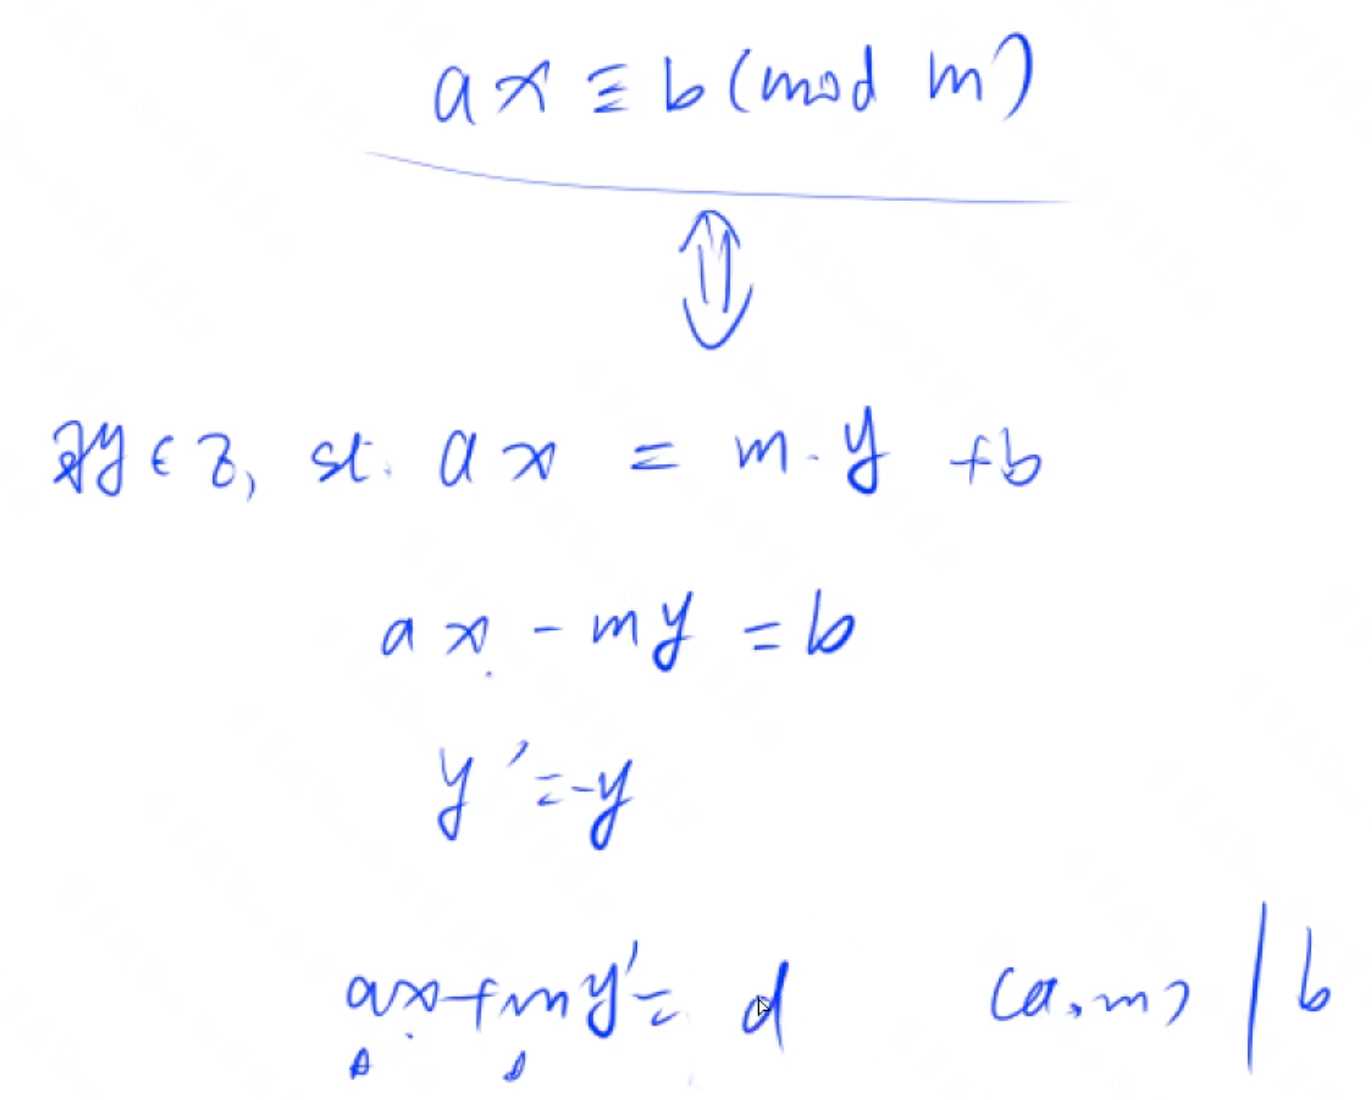 ax ≡ b (mod m)
⇕
∃y ∈ Z, st. ax = m·y + b
ax - my = b
y' = -y
ax + my' = d (a, m) | b